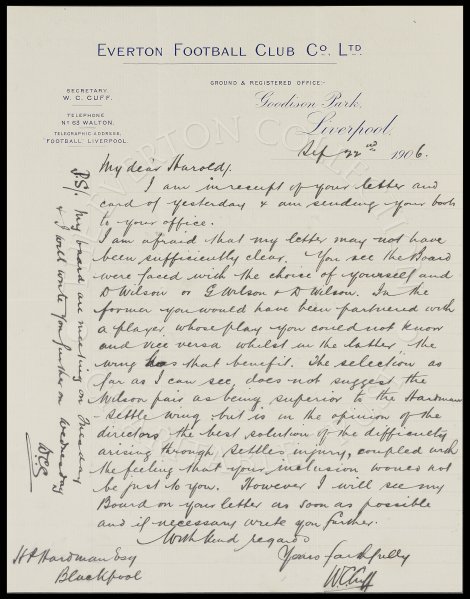 EVERTON FOOTBALL CLUB Co. LTD
SECRETARY.
W. C. CUFF.
TELEPHONE
No 63 WALTON.
TELEGRAPHIC ADDRESS,
"FOOTBALL" LIVERPOOL.
GROUND & REGISTERED OFFICE:-
Goodison Park,
Liverpool,
Sep 22nd 1906.
My dear Harold,
I am in receipt of your letter and
card of yesterday & am sending your boots
to your office.
I am afraid that my letter may not have
been sufficiently clear. You see the Board
were faced with the choice of yourself and
D Wilson or G Wilson & D Wilson. In the
former you would have been partnered with
a player, whose play you could not know
and vice versa whilst in the latter the
wing has that benefit. The selection as
far as I can see, does not suggest the
Wilson pair as being superior to the Hardman
-Settle wing but is in the opinion of the
directors the best solution of the difficulty
arising through Settles injury, coupled with
the feeling that your inclusion would not
be just to you. However I will see my
Board on your letter as soon as possible
and if necessary write you further.
With kind regards
Yours faithfully
W C Cuff
H P Hardman Esq
Blackpool
P.S/. My board are meeting on Tuesday
& I will write you further on Wednesday
WCC
EVERTON